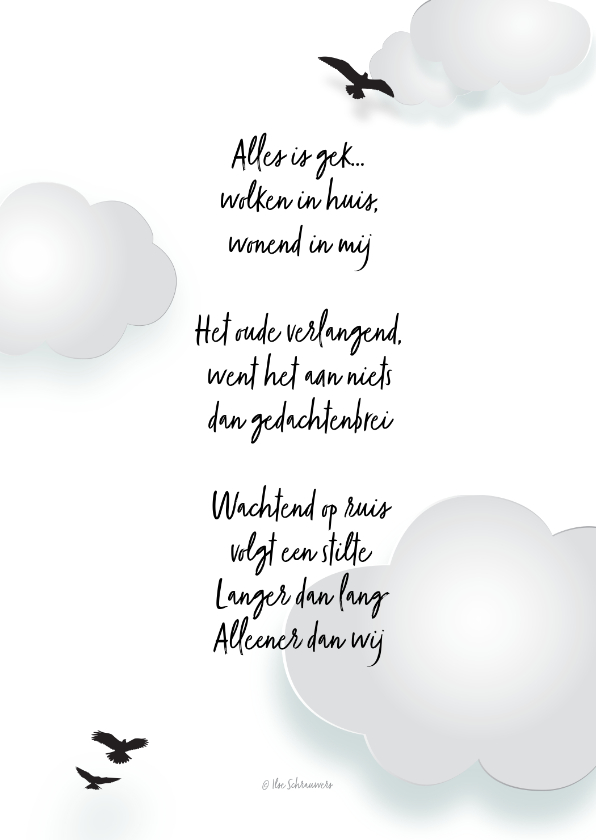 Alles is gek...
wolken in huis,
wonend in mij
Het oude verlangend,
went het aan niets
dan gedachtenbrei
Wachtend op ruis
volgt een stilte
Langer dan lang
Alleener dan wij
© Ilse Schrauwers